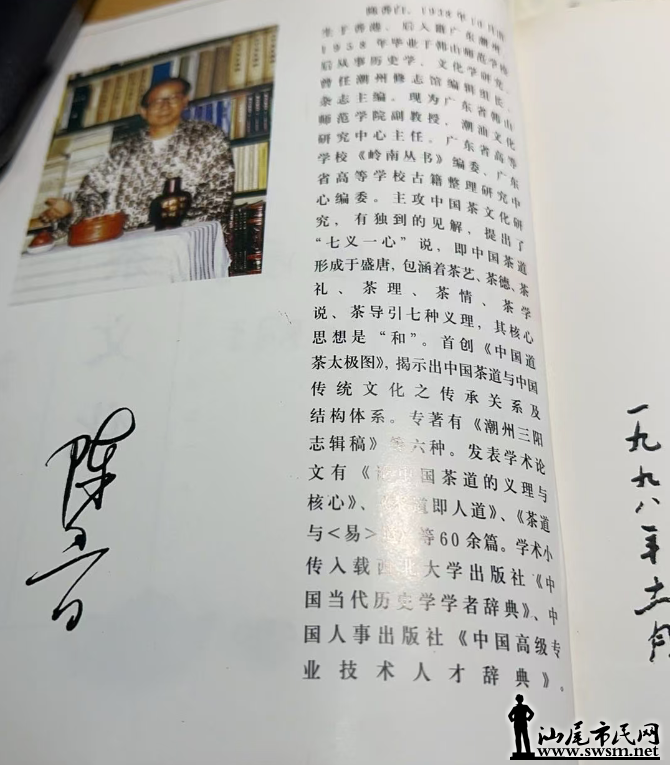 陈香白，1938年10月出
生于香港，后入籍广东潮州。
1958年毕业于韩山师范学校
后从事历史学、文化学研究。
曾任潮州修志馆编辑组长、
杂志主编。现为广东省韩山
师范学院副教授、潮汕文化
研究中心主任，广东省高等
学校《岭南丛书》编委、广东
省高等学校古籍整理研究中
心编委。主攻中国茶文化研
究，有独到的见解，提出了
“七义一心”说，即中国茶道
形成于盛唐，包涵着茶艺、茶德、茶
礼、茶理、茶情、茶学
说、茶导引七种义理，其核心
思想是“和”。首创《中国道
茶太极图》，揭示出中国茶道与中国
传统文化之传承关系及
结构体系。专著有《潮州三阳
志辑稿》等六种。发表学术论
文有《论中国茶道的义理与
核心》、《茶道即人道》、《茶道
与<易>道》等60余篇。学术小
传入载西北大学出版社《中
国当代历史学学者辞典》、中
国人事出版社《中国高级专
业技术人才辞典》。
陈香白
一九九八年十一月
汕尾市民网
www.swsm.net